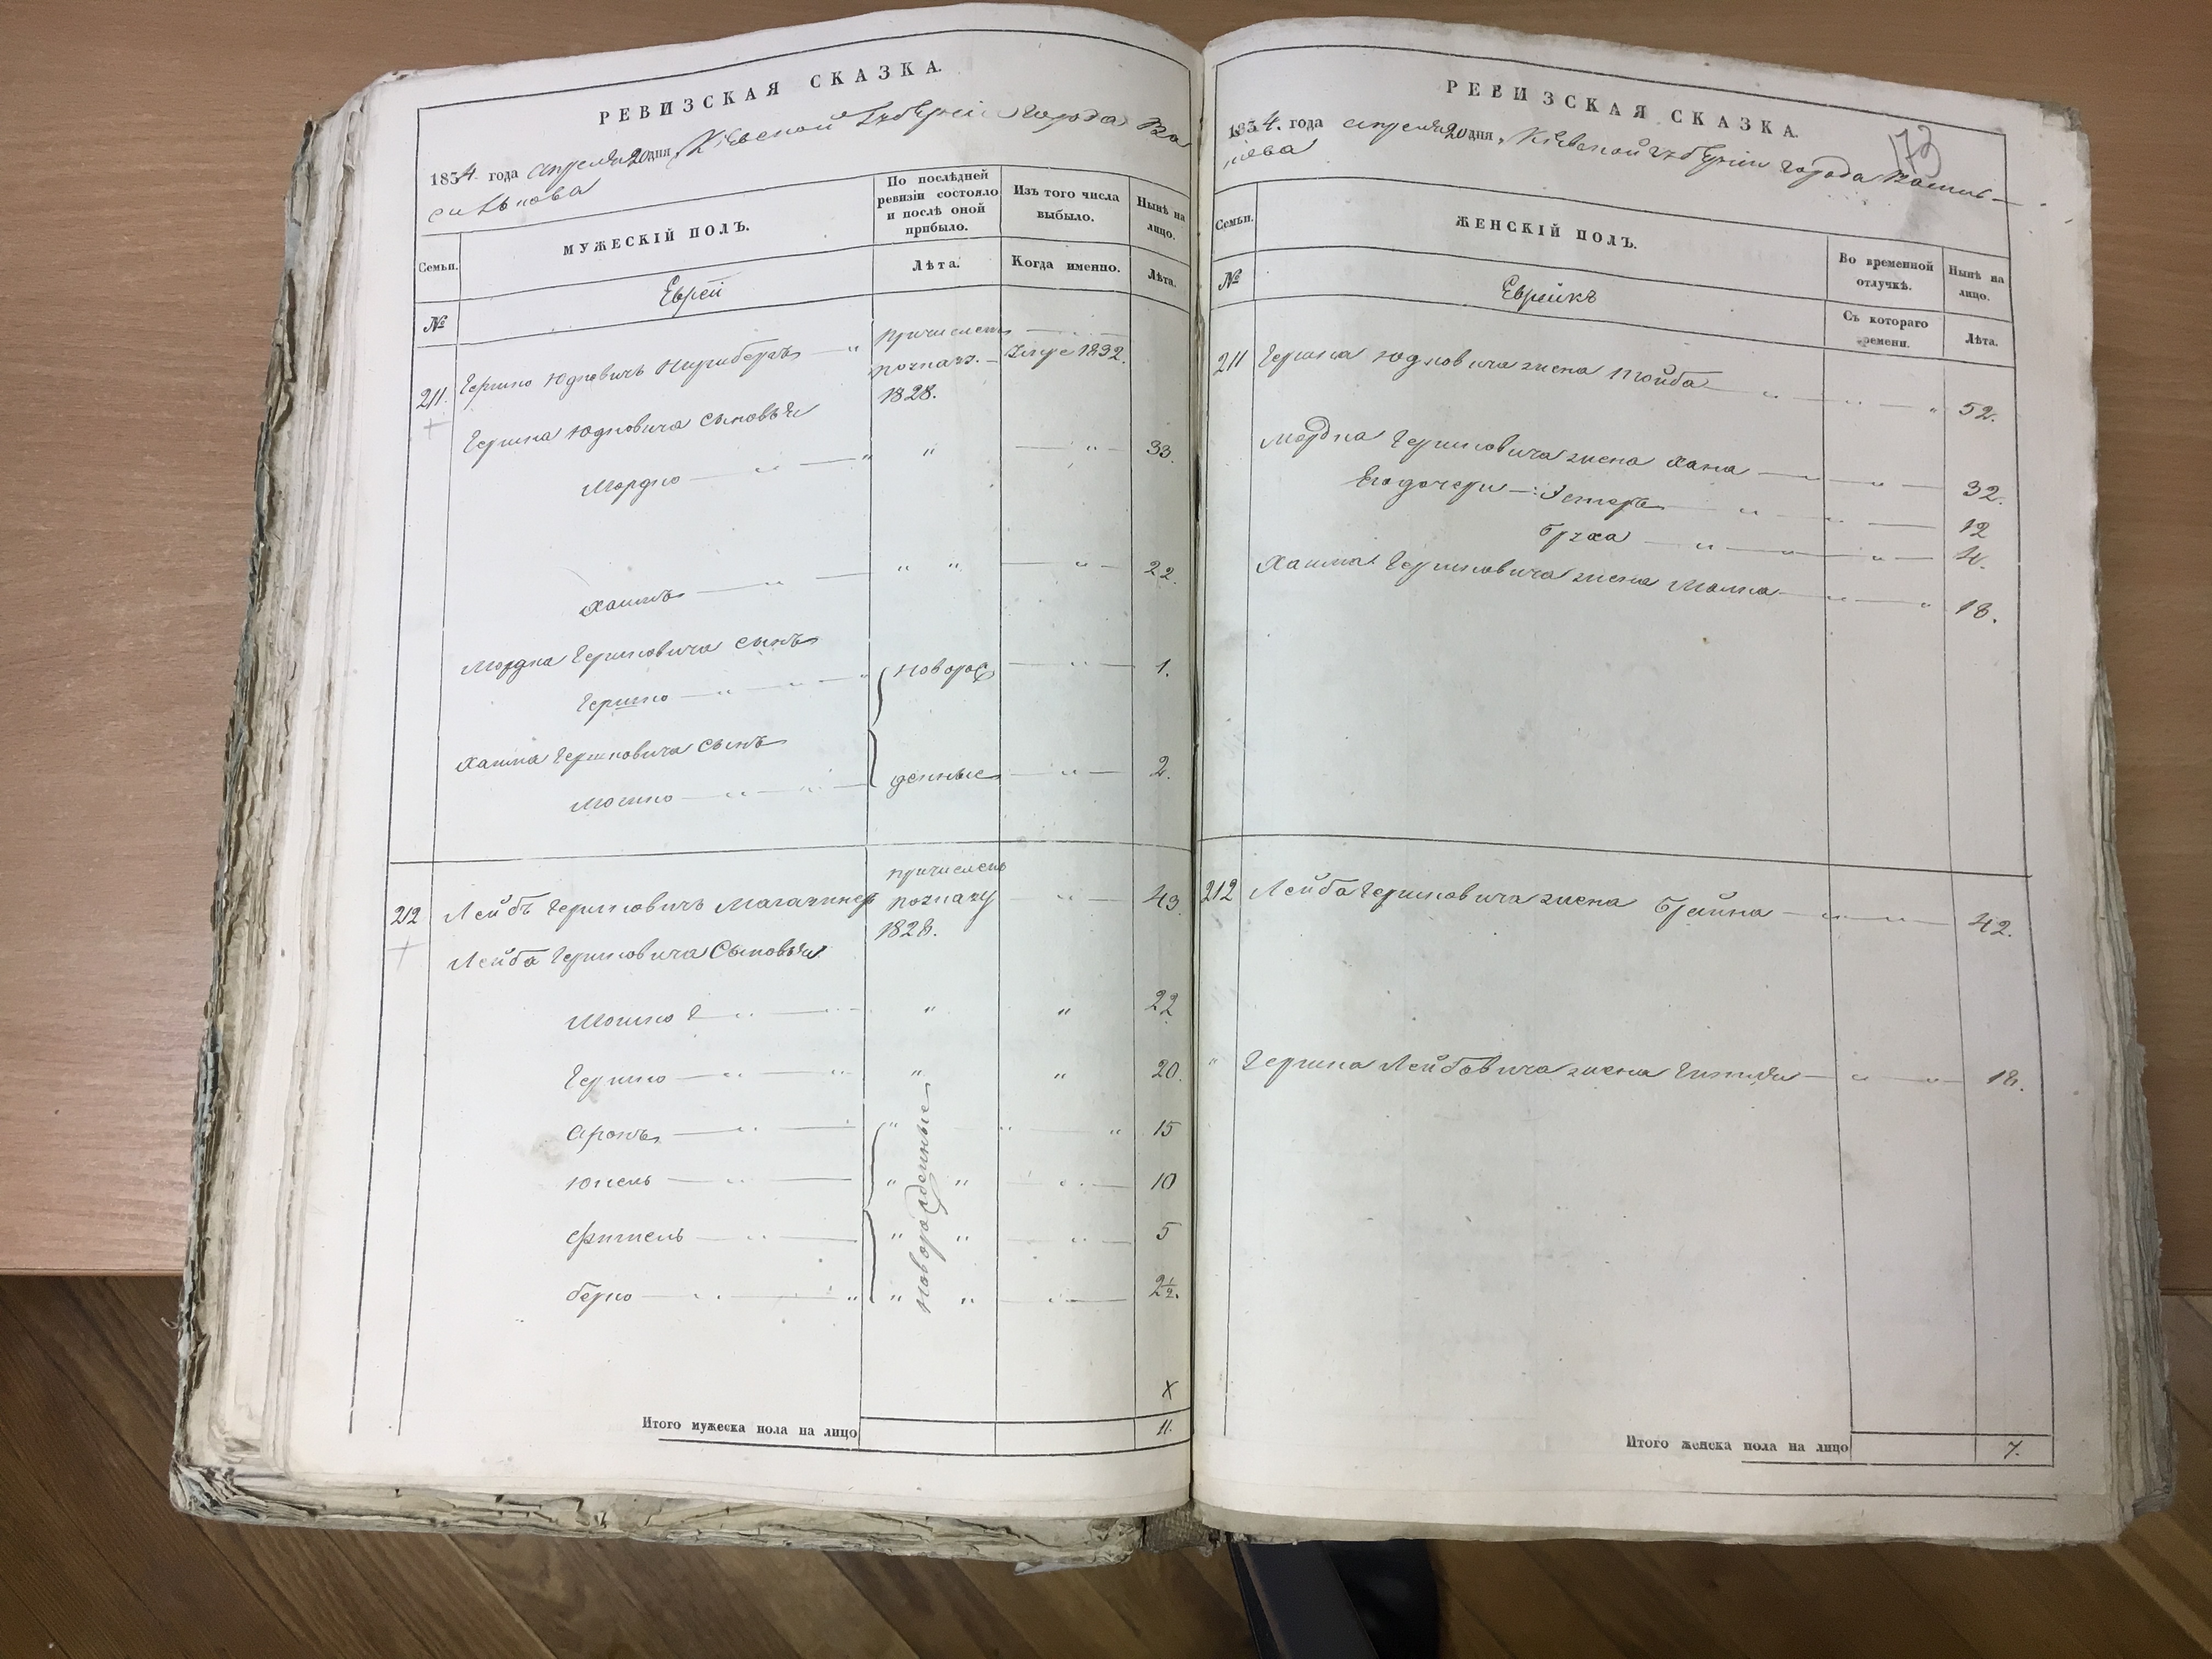 РЕВИЗСКАЯ СКАЗКА.
1834 года апреля 20 дня, Кіевской Губерніи города Ва
силькова
Семьи.
МУЖЕСКІЙ ПОЛЪ.
По послѣдней ревизіи состояло и послѣ оной прибыло.
Изъ того числа выбыло.
Нынѣ на лицо.
Еврей
Лѣта.
Когда именно.
Лѣта.
№
211. Гершко Юдковичъ — " причисленъ
по указ. — Умре 1832.
1828.
Гершка Юдковича сыновья
Мордко — " — " " — " — 33.
Хаимъ — " — " " — " — 22.
Мордка Гершковича сынъ
Гершко — " — " — " новорож — " — 1.
Хаима Гершковича сынъ
Мошко — " — " — денные — " — 2.
212 Лейбъ Гершковичъ Магазинер причисленъ
по указу — " — 43.
1828.
Лейба Гершковича Сыновья
Мошко — " — " " 22
Гершко — " — " " " 20.
Аронъ — " — " " " 15
Юкель — " — " " " — 10
Фишель — " — " " " — 5
Берко — " — " " " — 2½.
новорожденные
X
Итого мужеска пола на лицо 11.
РЕВИЗСКАЯ СКАЗКА.
173
1834. года апреля 20 дня, Кіевской губерніи города Василь—
кова
Семьи.
ЖЕНСКІЙ ПОЛЪ.
Во временной отлучкѣ.
Нынѣ на лицо.
№
Еврейкъ
Съ котораго времени.
Лѣта.
211 Гершка Юдковича жена Тойба — " — " — " 52.
Мордка Гершковича жена Хана — " — 32.
Его дочери —: Эстеръ — " — " — 12
Бруха — " — " — " — 4.
Хаима Гершковича жена Малка — " — " 18.
212 Лейба Гершковича жена Брайна — " — " — 42.
" Гершка Лейбовича жена — " — " — 18.
Итого женска пола на лицо 7.